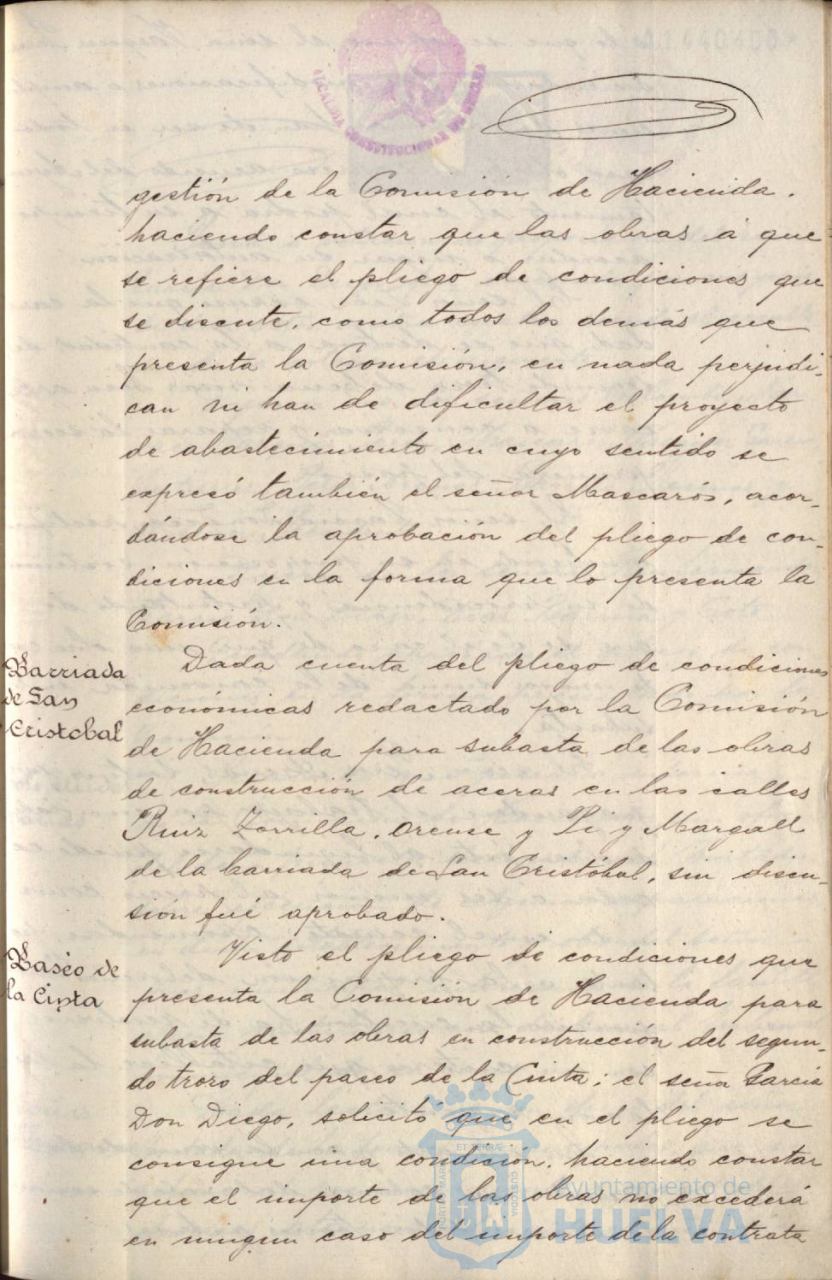 ALCALDIA CONSTITUCIONAL DE
gestión de la Comisión de Hacienda.
haciendo constar que las obras á que
se refiere el pliego de condiciones que
se discute, como todos los demás que
presenta la Comisión, en nada perjudi-
can ni han de dificultar el proyecto
de abastecimiento en cuyo sentido se
expresó también el señor Mascarós, acor-
dándose la aprobación del pliego de con-
diciones en la forma que lo presenta la
Comisión.
Barriada
de San
Cristobal
Dada cuenta del pliego de condiciones
económicas redactado por la Comisión
de Hacienda para subasta de las obras
de construcción de aceras en las calles
Ruiz Zorrilla, Orense y Pi y Margall
de la barriada de San Cristóbal, sin discu-
sión fué aprobado.
Paseo de
la Cinta
Visto el pliego de condiciones que
presenta la Comisión de Hacienda para
subasta de las obras en construcción del segun-
do trozo del paseo de la Cinta; el señor García
Don Diego, solicitó que en el pliego se
consigne una condición, haciendo constar
que el importe de las obras no excederá
en ningun caso del importe de la contrata
Ayuntamiento de
HUELVA